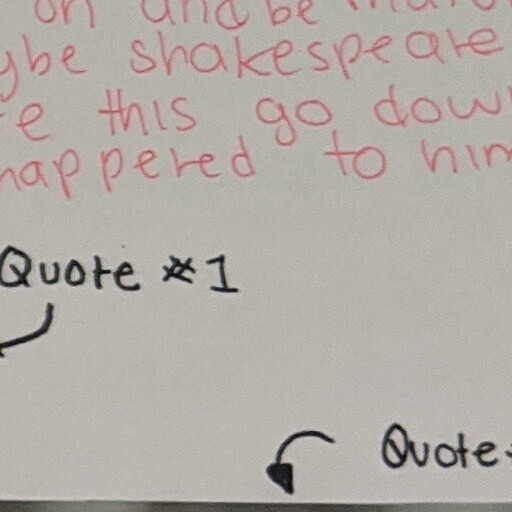 on and be
ybe shakespeare
e this go dow
happered to him
Quote #1
Quote